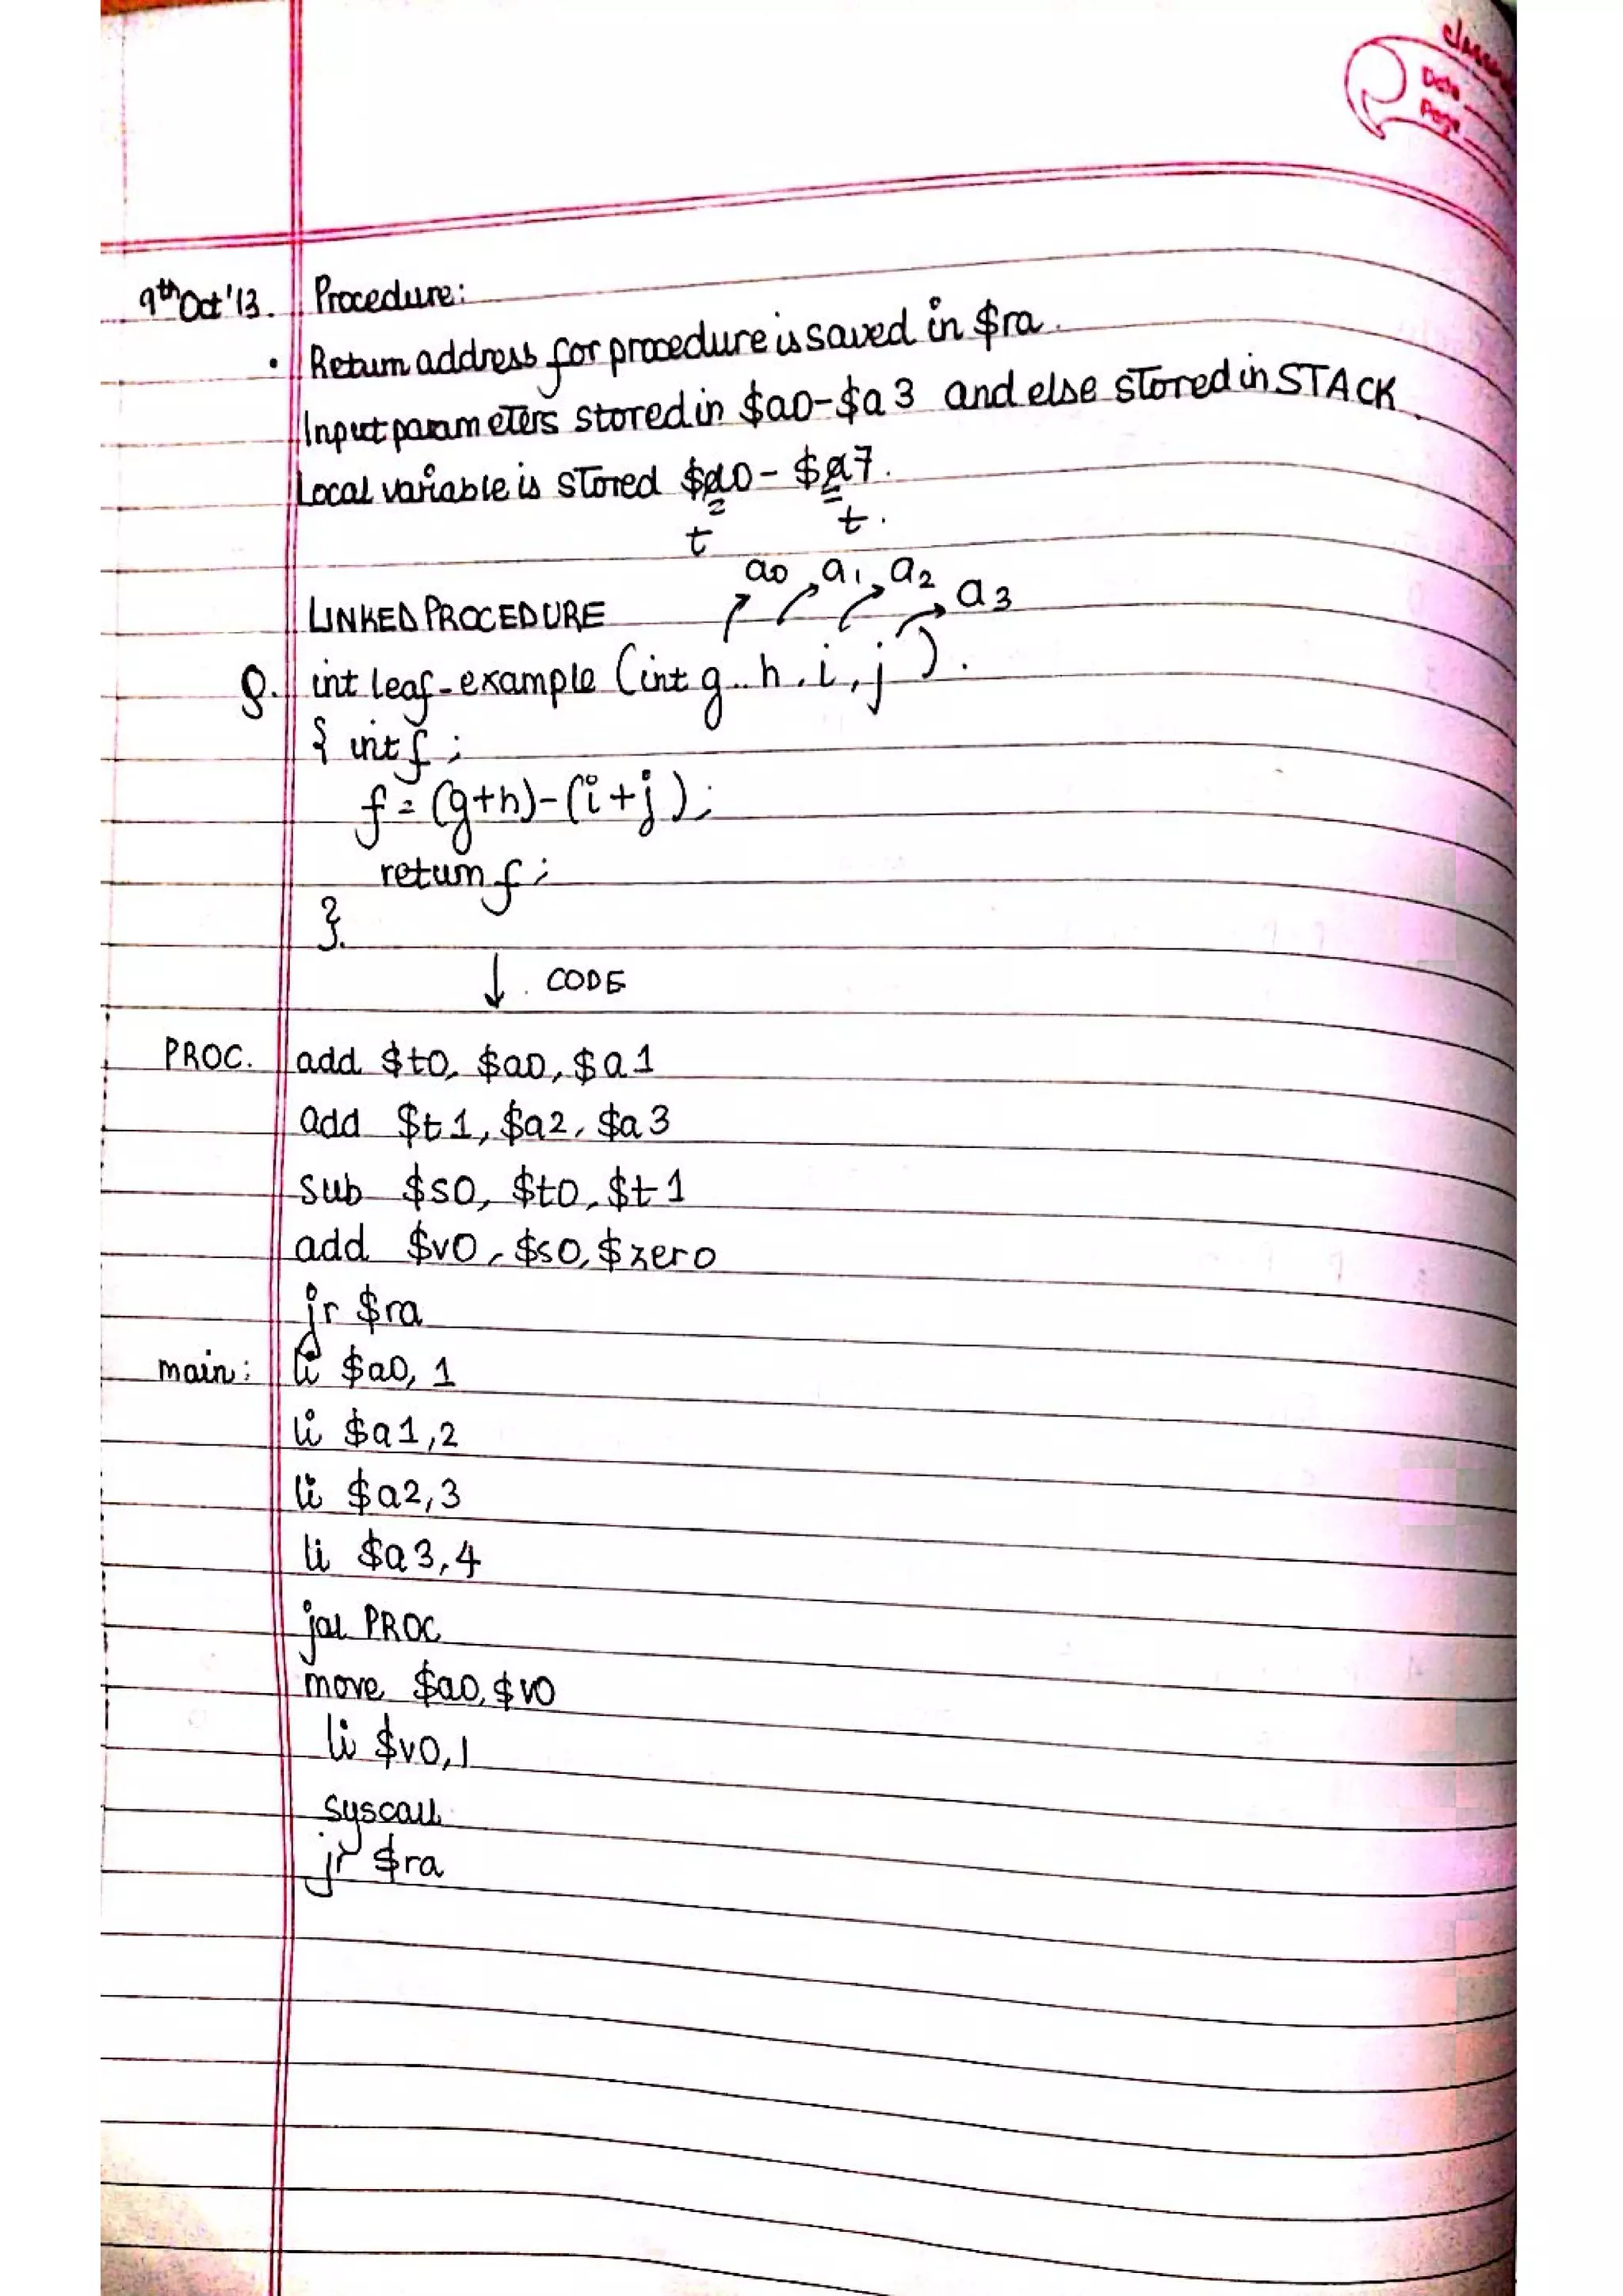 Date
Page
9th Oct '13. Procedure:
• Return address for procedure is saved in $ra.
Input parameters stored in $a0-$a3 and else stored in STACK.
Local variable is stored $a0 - $a7.
t t.
a0, a1, a2 a3
LINKED PROCEDURE
Q. int leaf-example (int g.. h, i, j).
{ int f;
f = (g+h)-(i+j);
return f;
}.
↓ CODE
PROC. add $t0, $a0, $a1
add $t1, $a2, $a3
sub $s0, $t0, $t1
add $v0, $s0, $zero
jr $ra
main: li $a0, 1
li $a1,2
li $a2,3
li $a3,4
jal PROC
move $a0, $v0
li $v0,1
syscall
jr $ra